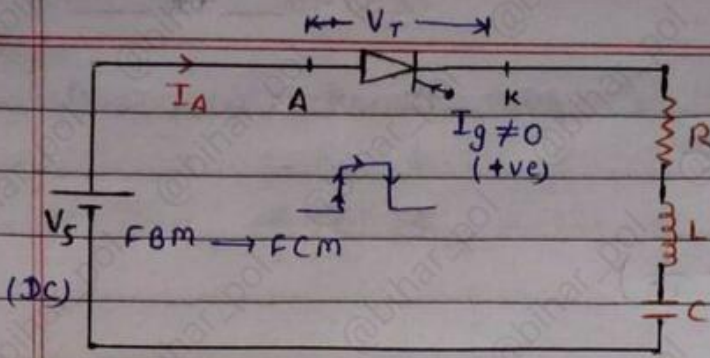 V_T
I_A
A
K
I_g ≠ 0
(+ve)
R
V_S
FBM → FCM
L
(DC)
C
@bihar_pol